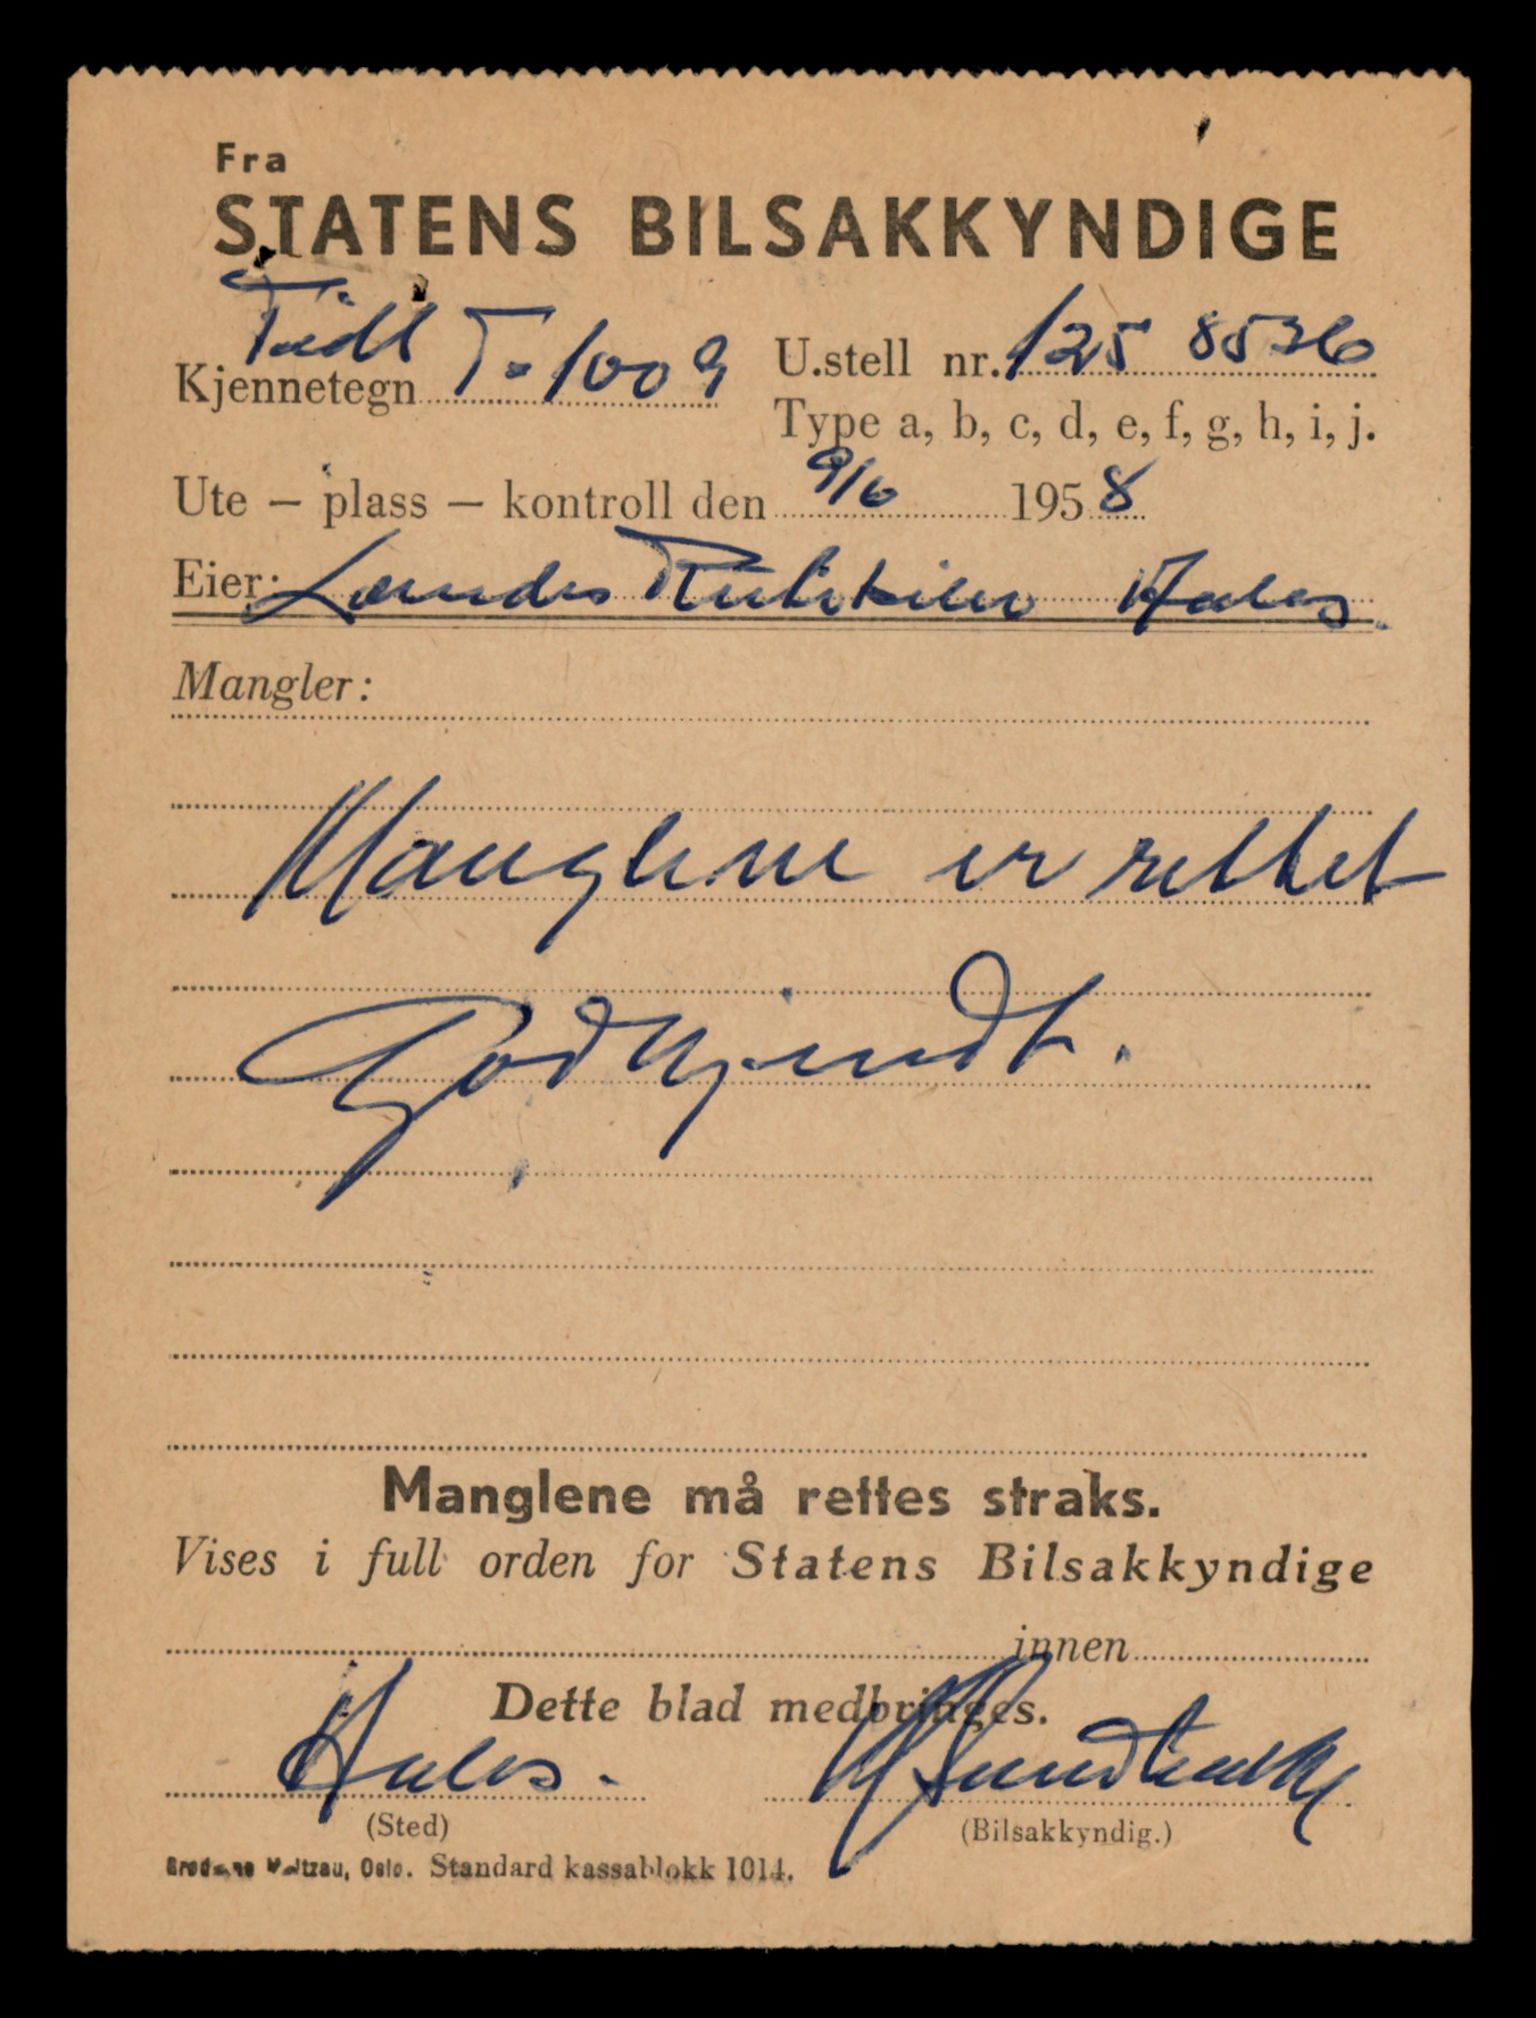 Fra
STATENS BILSAKKYNDIGE
Kjennetegn T-1009
U.stell nr. 125 8536
Type a, b, c, d, e, f, g, h, i, j.
Ute – plass – kontroll den 9/6 1958
Eier:
Mangler:
Manglene er rettet
Godkjendt.
Manglene må rettes straks.
Vises i full orden for Statens Bilsakkyndige
innen
Dette blad medbringes.
(Sted)
(Bilsakkyndig.)
Oslo. Standard kassablokk 1014.